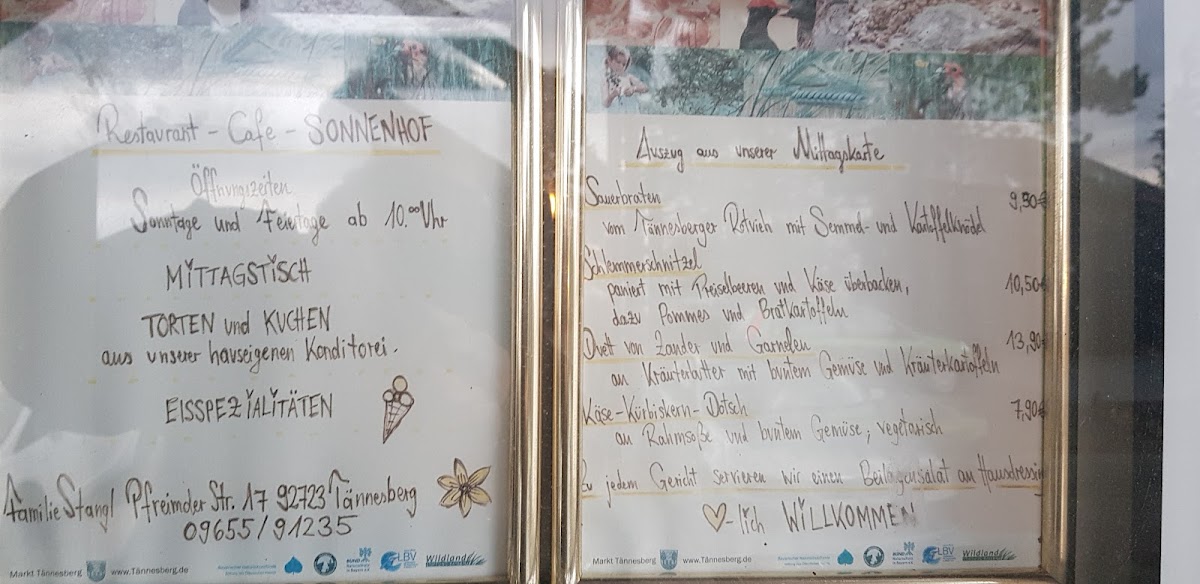 Restaurant - Cafe - SONNENHOF
Öffnungszeiten
Sonntage und Feiertage ab 10.00 Uhr
MITTAGSTISCH
TORTEN und KUCHEN
aus unserer hauseigenen Konditorei.
EISSPEZIALITÄTEN
Familie Stangl Pfreimder Str. 17 92723 Tännesberg
09655/91235
Markt Tännesberg www.Tännesberg.de LBV Wildland
Auszug aus unserer Mittagskarte
Sauerbraten 9,90€
vom Tännesberger Rotvieh mit Semmel- und Kartoffelknödel
Schlemmerschnitzel
paniert mit Preiselbeeren und Käse überbacken, 10,50€
dazu Pommes und Bratkartoffeln
Duett von Zander und Garnelen 13,90€
an Kräuterbutter mit buntem Gemüse und Kräuterkartoffeln
Käse-Kürbiskern-Dotsch 7,90€
an Rahmsoße und buntem Gemüse, vegetarisch
Zu jedem Gericht servieren wir einen Beilagensalat an Hausdressin
-lich WILLKOMMEN
Markt Tännesberg www.Tännesberg.de LBV Wildland